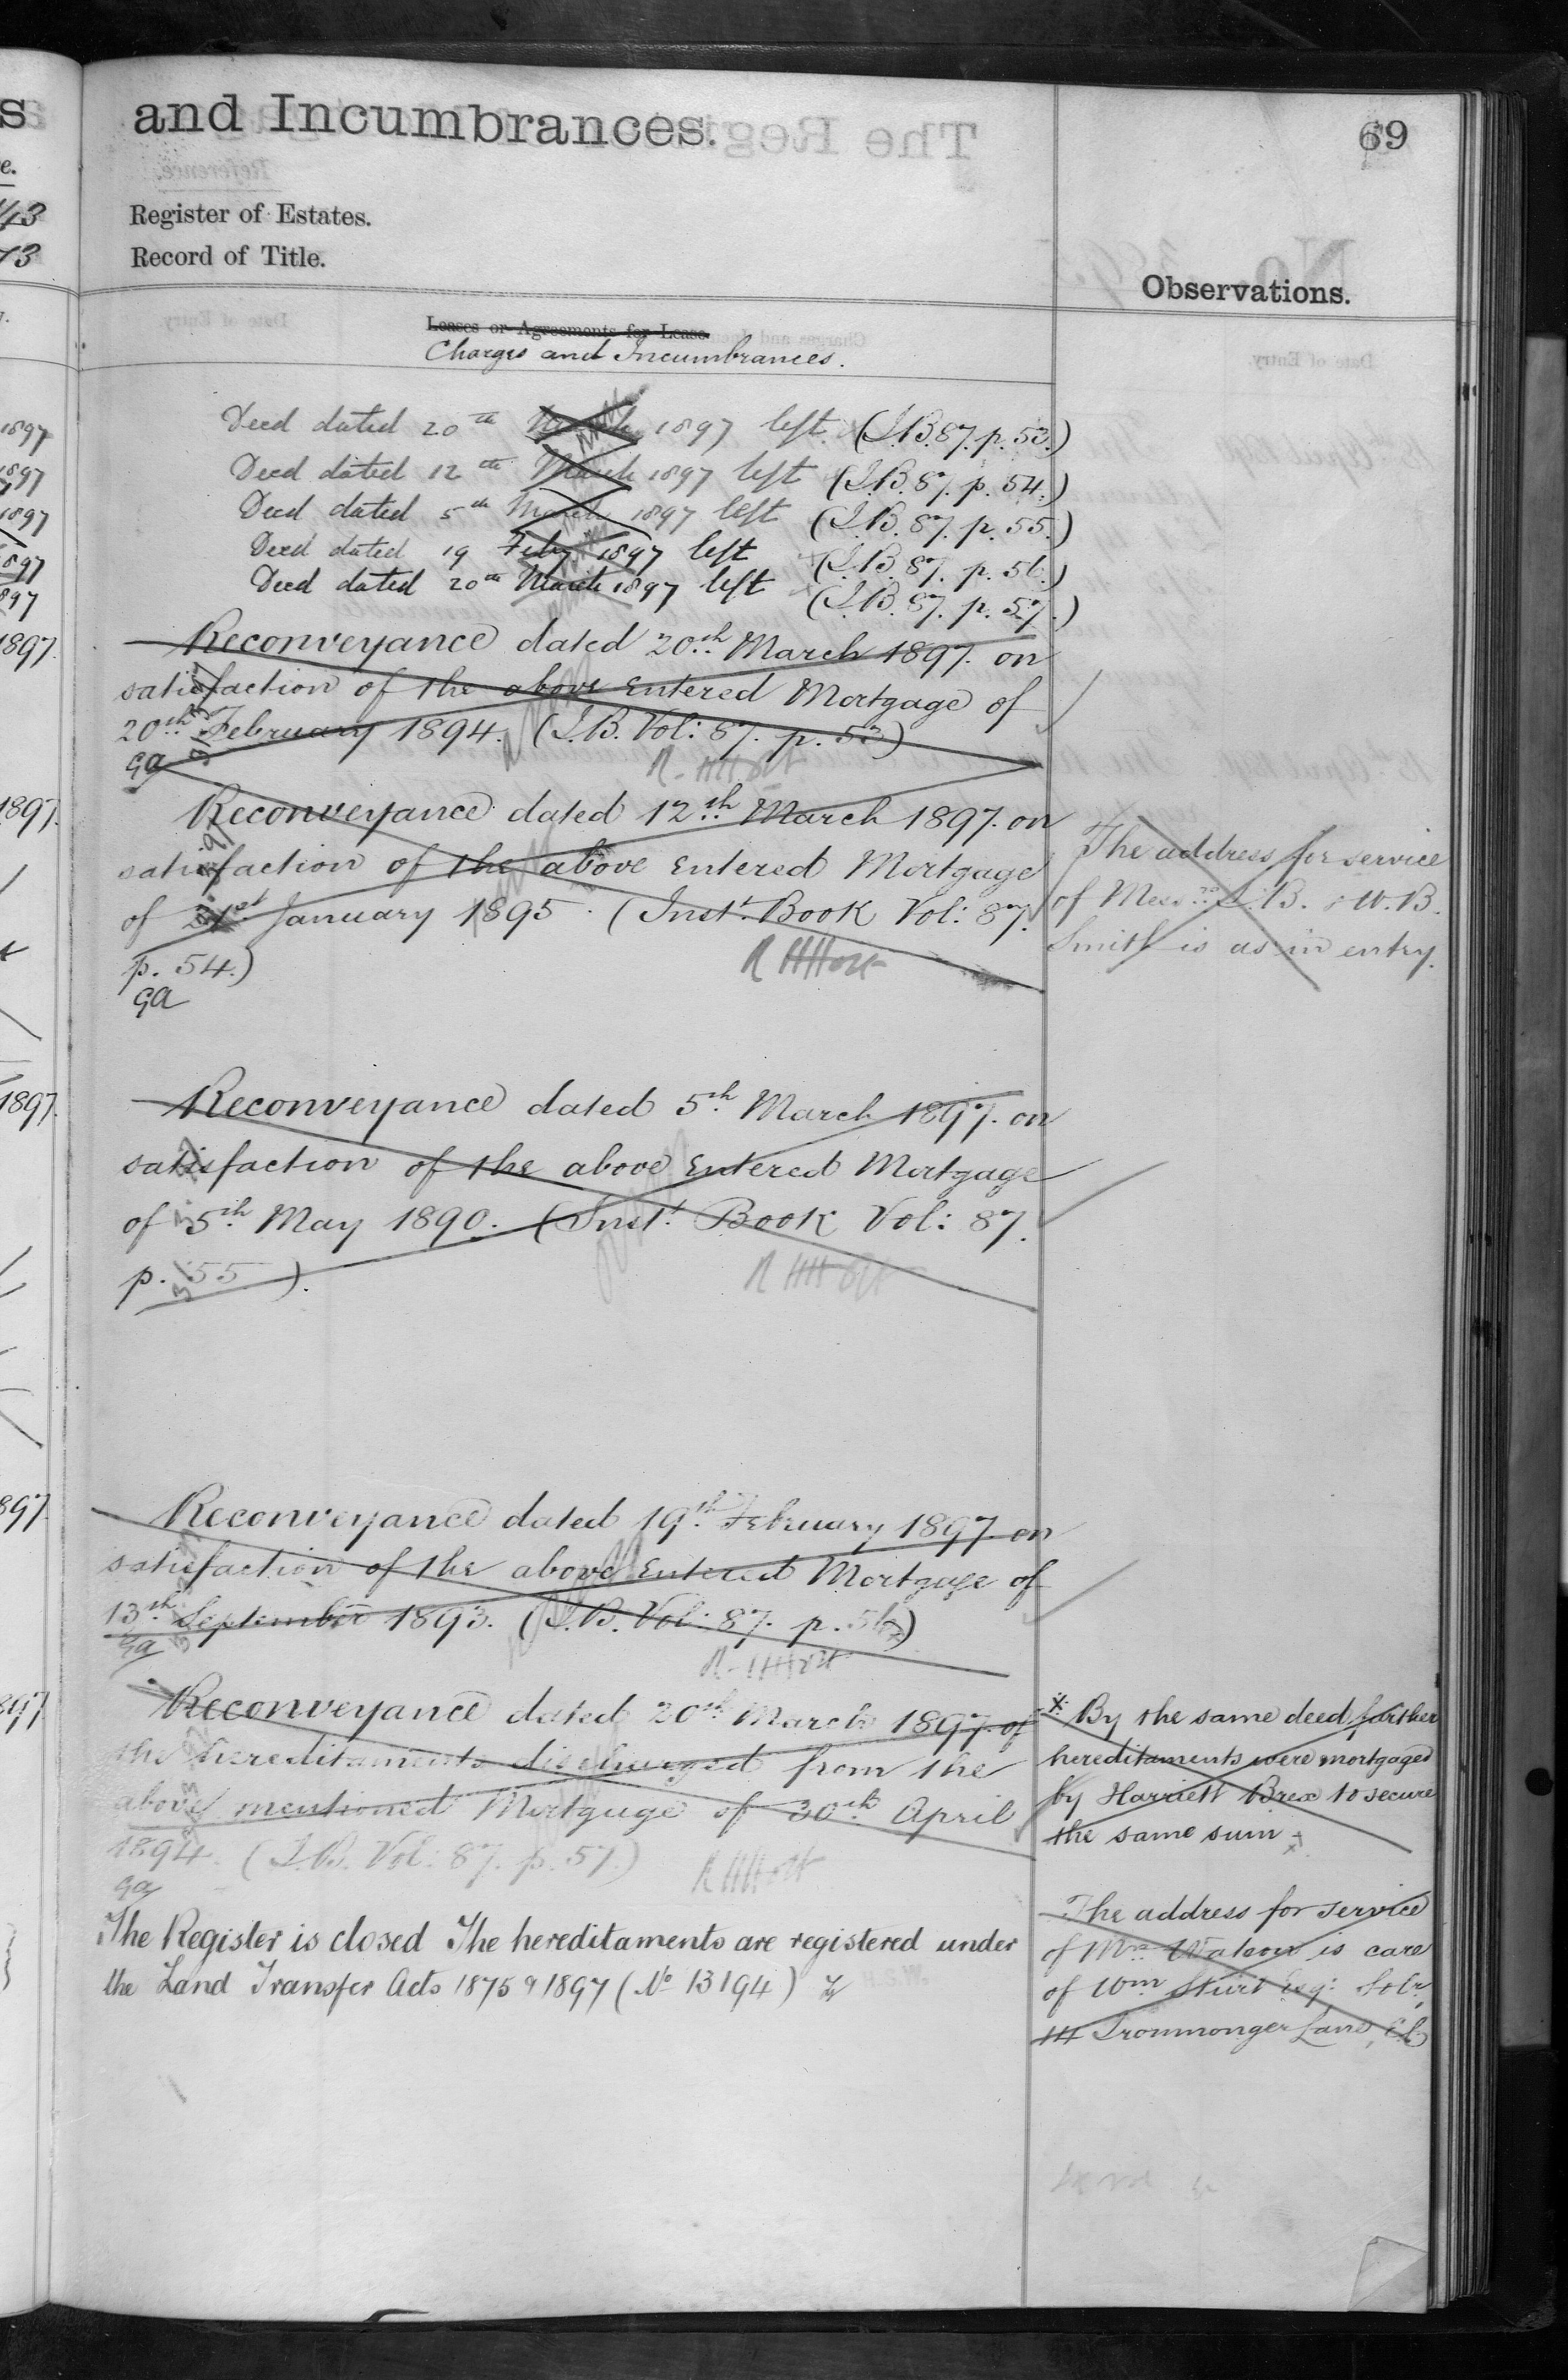 and Incumbrances.
69
Register of Estates.
Record of Title.
Observations.
Leases or Agreements for Lease
Charges and Incumbrances.
Deed dated 20th March 1897 left (I.B. 87. p. 53.)
Deed dated 12th March 1897 left (I.B. 87. p. 54.)
Deed dated 5th March 1897 left (I.B. 87. p. 55.)
Deed dated 19 Feby 1897 left (I.B. 87. p. 56.)
Deed dated 20th March 1897 left (I.B. 87. p. 57.)
Reconveyance dated 20th March 1897. on
satisfaction of the above Entered Mortgage of
20th February 1894. (I.B. Vol: 87. p. 53)
GA
Reconveyance dated 12th March 1897. on
satisfaction of the above Entered Mortgage
of January 1895. (Inst. Book Vol: 87.
p. 54.)
GA
Reconveyance dated 5th March 1897. on
satisfaction of the above Entered Mortgage
of 5th May 1890. (Inst. Book Vol: 87.
p. 55).
Reconveyance dated 19th February 1897 on
satisfaction of the above Entered Mortgage of
13th September 1893. (I.B. Vol: 87. p. 56)
GA
Reconveyance dated 20th March 1897. of
the hereditaments discharged from the
above mentioned Mortgage of 30th April
1894. (I.B. Vol: 87. p. 57.)
GA
The Register is closed The hereditaments are registered under
the Land Transfer Acts 1875 & 1897 (No 13194)
The address for service
of Messrs B. & W.B.
Smith is as in entry.
By the same deed further
hereditaments were mortgaged
by Harriett Brex to secure
the same sum
The address for service
of Mrs is care
of Wm Sturt Esq: Solr,
14 Ironmonger Lane, E.C.
1897
1897
1897
1897
897
1897.
1897.
1897.
897.
897.